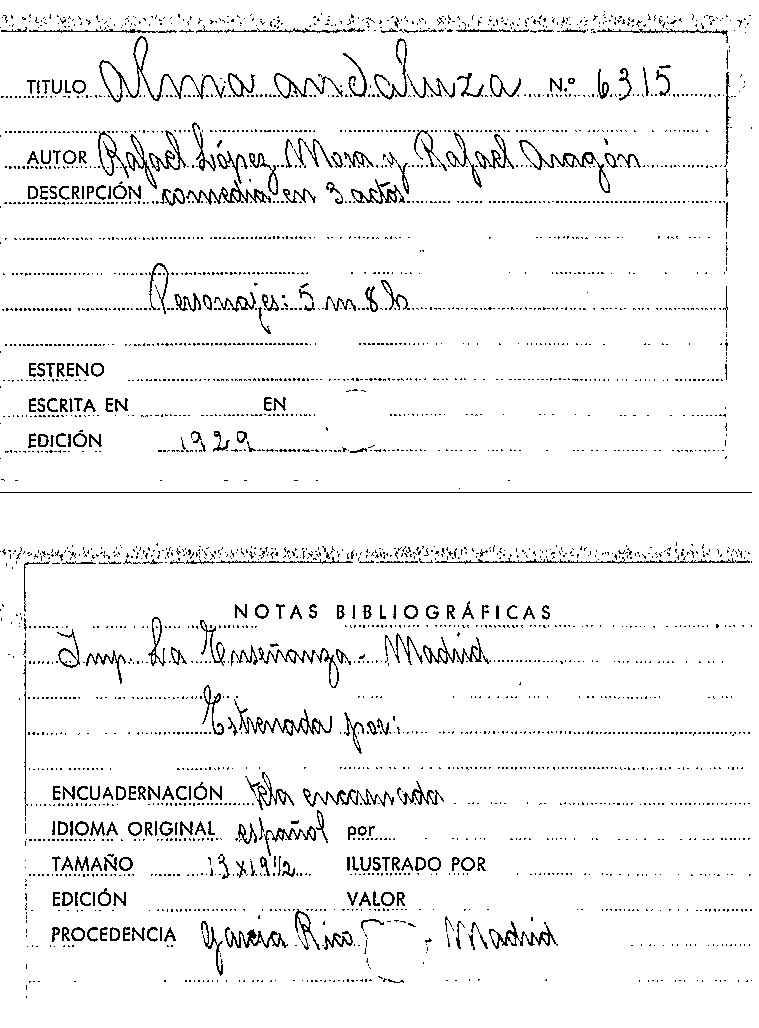 TITULO Alma andaluza N.º 6315
AUTOR Rafael López Mora y Rafael Aragón
DESCRIPCIÓN comedia en 3 actos
Personajes: 5 m 8 h
ESTRENO
ESCRITA EN EN
EDICIÓN 1929
NOTAS BIBLIOGRÁFICAS
Imp. La Enseñanza - Madrid
Estrenada por:
ENCUADERNACIÓN tela encarnada
IDIOMA ORIGINAL español por
TAMAÑO 13 x 19 1/2 ILUSTRADO POR
EDICIÓN VALOR
PROCEDENCIA García Rico - Madrid